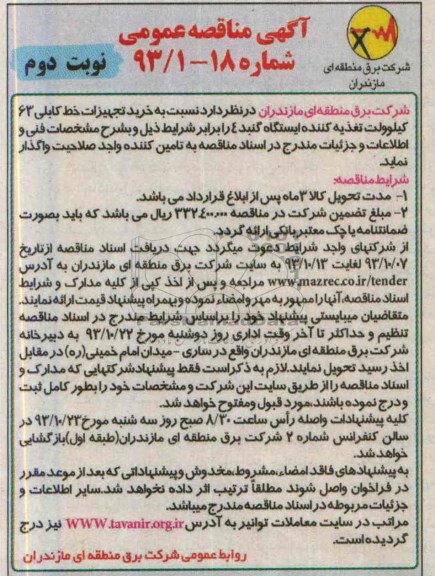 آگهی مناقصه عمومی
شماره ۱۸-۹۳/۱
نوبت دوم
شرکت برق منطقه ای
مازندران
شرکت برق منطقه ای مازندران درنظر دارد نسبت به خرید تجهیزات خط کابلی ۶۳
کیلوولت تغذیه کننده ایستگاه گنبد ٤ را برابر شرایط ذیل و بشرح مشخصات فنی و
اطلاعات و جزئیات مندرج در اسناد مناقصه به تامین کننده واجد صلاحیت واگذار
نماید.
شرایط مناقصه:
۱- مدت تحویل کالا ۳ ماه پس از ابلاغ قرارداد می باشد.
۲- مبلغ تضمین شرکت در مناقصه ۳۳۲.٤۰۰.۰۰۰ ریال می باشد که باید بصورت
ضمانتنامه یا چک معتبر بانکی ارائه گردد.
از شرکتهای واجد شرایط دعوت میگردد جهت دریافت اسناد مناقصه ازتاریخ
۹۳/۱۰/۰۷ لغایت ۹۳/۱۰/۱۳ به سایت شرکت برق منطقه ای مازندران به آدرس
www.mazrec.co.ir/tender مراجعه و پس از اخذ کپی از کلیه مدارک و شرایط
اسناد مناقصه، آنها را ممهور به مهر و امضاء نموده و بهمراه پیشنهاد قیمت ارائه نمایند.
متقاضیان میبایستی پیشنهاد خود را براساس شرایط مندرج در اسناد مناقصه
تنظیم و حداکثر تا آخر وقت اداری روز دوشنبه مورخ ۹۳/۱۰/۲۲ به دبیرخانه
شرکت برق منطقه ای مازندران واقع در ساری - میدان امام خمینی(ره) در مقابل
اخذ رسید تحویل نمایند. لازم به ذکر است فقط پیشنهاد شرکتهایی که مدارک و
اسناد مناقصه را از طریق سایت این شرکت و مشخصات خود را بطور کامل ثبت
و درج نموده باشند، مورد قبول ومفتوح خواهد شد.
کلیه پیشنهادات واصله رأس ساعت ۸/۳۰ صبح روز سه شنبه مورخ ۹۳/۱۰/۲۳ در
سالن کنفرانس شماره ۲ شرکت برق منطقه ای مازندران (طبقه اول) بازگشایی
خواهد شد.
به پیشنهادهای فاقد امضاء، مشروط، مخدوش و پیشنهاداتی که بعد از موعد مقرر
در فراخوان واصل شوند مطلقاً ترتیب اثر داده نخواهد شد. سایر اطلاعات و
جزئیات مربوطه در اسناد مناقصه مندرج میباشد.
مراتب در سایت معاملات توانیر به آدرس WWW.tavanir.org.ir نیز درج
گردیده است.
روابط عمومی شرکت برق منطقه ای مازندران